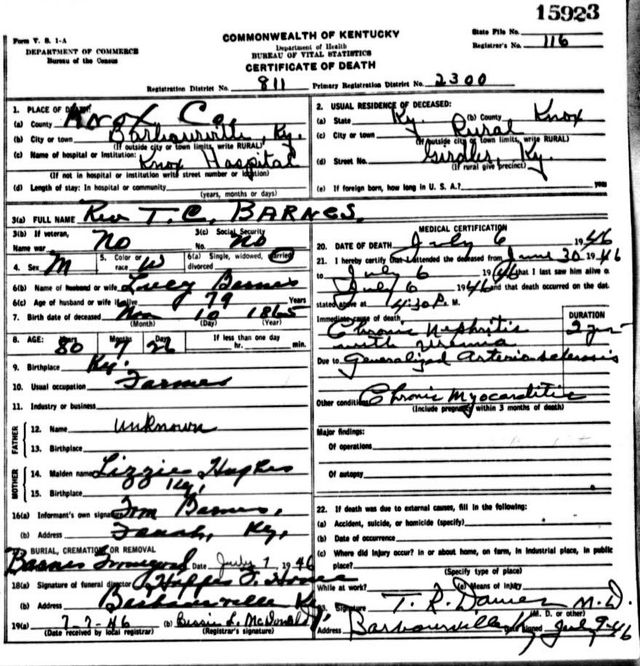 15923
Form V. S. 1-A
DEPARTMENT OF COMMERCE
Bureau of the Census
COMMONWEALTH OF KENTUCKY
Department of Health
BUREAU OF VITAL STATISTICS
CERTIFICATE OF DEATH
State File No.
Registrar's No. 116
Registration District No. 811 Primary Registration District No. 2300
1. PLACE OF
(a) County Knox Co.
(b) City or town Barbourville, Ky.
(If outside city or town limits, write RURAL)
(c) Name of hospital or Institution: Knox Hospital
(If not in hospital or institution write street number or location)
(d) Length of stay: In hospital or community
(years, months or days)
2. USUAL RESIDENCE OF DECEASED:
(a) State Ky. (b) County Knox
(c) City or town Rural
(If outside city or town limits, write RURAL)
(d) Street No. Girdler, Ky.
(If rural give precinct)
(e) If foreign born, how long in U. S. A.? years
3(a) FULL NAME Rev T. C. BARNES.
3(b) If veteran, Name war No 3(c) Social Security No. No
4. Sex M 5. Color or race W 6(a) Single, widowed, married divorced
6(b) Name of husband or wife Lucy Barnes
6(c) Age of husband or wife if alive 79 Years
7. Birth date of deceased Nov 10 1865
(Month) (Day) (Year)
8. AGE: Years Months Days If less than one day
80 7 26 hr. min.
9. Birthplace Ky.
10. Usual occupation Farmer
11. Industry or business
FATHER
12. Name unknown
13. Birthplace
MOTHER
14. Maiden name Lizzie
15. Birthplace Ky.
16(a) Informant's own signature Tom Barnes,
(b) Address Ky.
BURIAL, CREMATION OR REMOVAL
Barnes Date July 7 1946
18(a) Signature of funeral director
(b) Address Barbourville Ky
19(a) 7-7-46 (b) Bessie L. McDonald
(Date received by local registrar) (Registrar's signature)
MEDICAL CERTIFICATION
20. DATE OF DEATH July 6 1946
21. I hereby certify that I attended the deceased from June 30 1946
to July 6 1946 that I last saw him alive o
July 6 1946 and that death occurred on the dat
stated above at 4:30 P. M.
Immediate cause of death DURATION
Chronic Nephritis 2 yrs
with uremia
Due to Generalized Arteriosclerosis
Other conditions Chronic Myocarditis
(Include pregnancy within 3 months of death)
Major findings:
Of operations
Of autopsy
22. If death was due to external causes, fill in the following:
(a) Accident, suicide, or homicide (specify)
(b) Date of occurrence
(c) Where did injury occur? In or about home, on farm, in industrial place, in public
place?
(Specify type of place)
While at work? (e) Means of injury
23. Signature T. R. Davies M.D.
(M. D. or other)
Address Barbourville Ky signed July 9-46